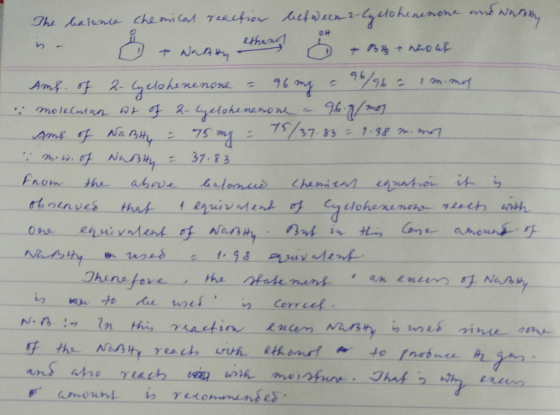 The balance chemical reaction between 2-Cyclohexenone and NaBH4
is - O + NaBH4 ethanol OH + BH3 + NaOEt
Amt. of 2-Cyclohexenone = 96 mg = 96/96 = 1 m.mol
∵ molecular wt of 2-Cyclohexenone = 96 g/mol
Amt of NaBH4 = 75 mg = 75/37.83 = 1.98 m.mol
∵ m.w. of NaBH4 = 37.83
From the above balanced chemical equation it is
observed that 1 equivalent of Cyclohexenone reacts with
one equivalent of NaBH4. But in this Case amount of
NaBH4 used = 1.98 equivalent.
Therefore, the statement 'an excess of NaBH4
is to be used' is correct.
N.B. :- In this reaction excess NaBH4 is used since some
of the NaBH4 reacts with ethanol to produce H2 gas.
and also reacts with moisture. That is why excess
amount is recommended.